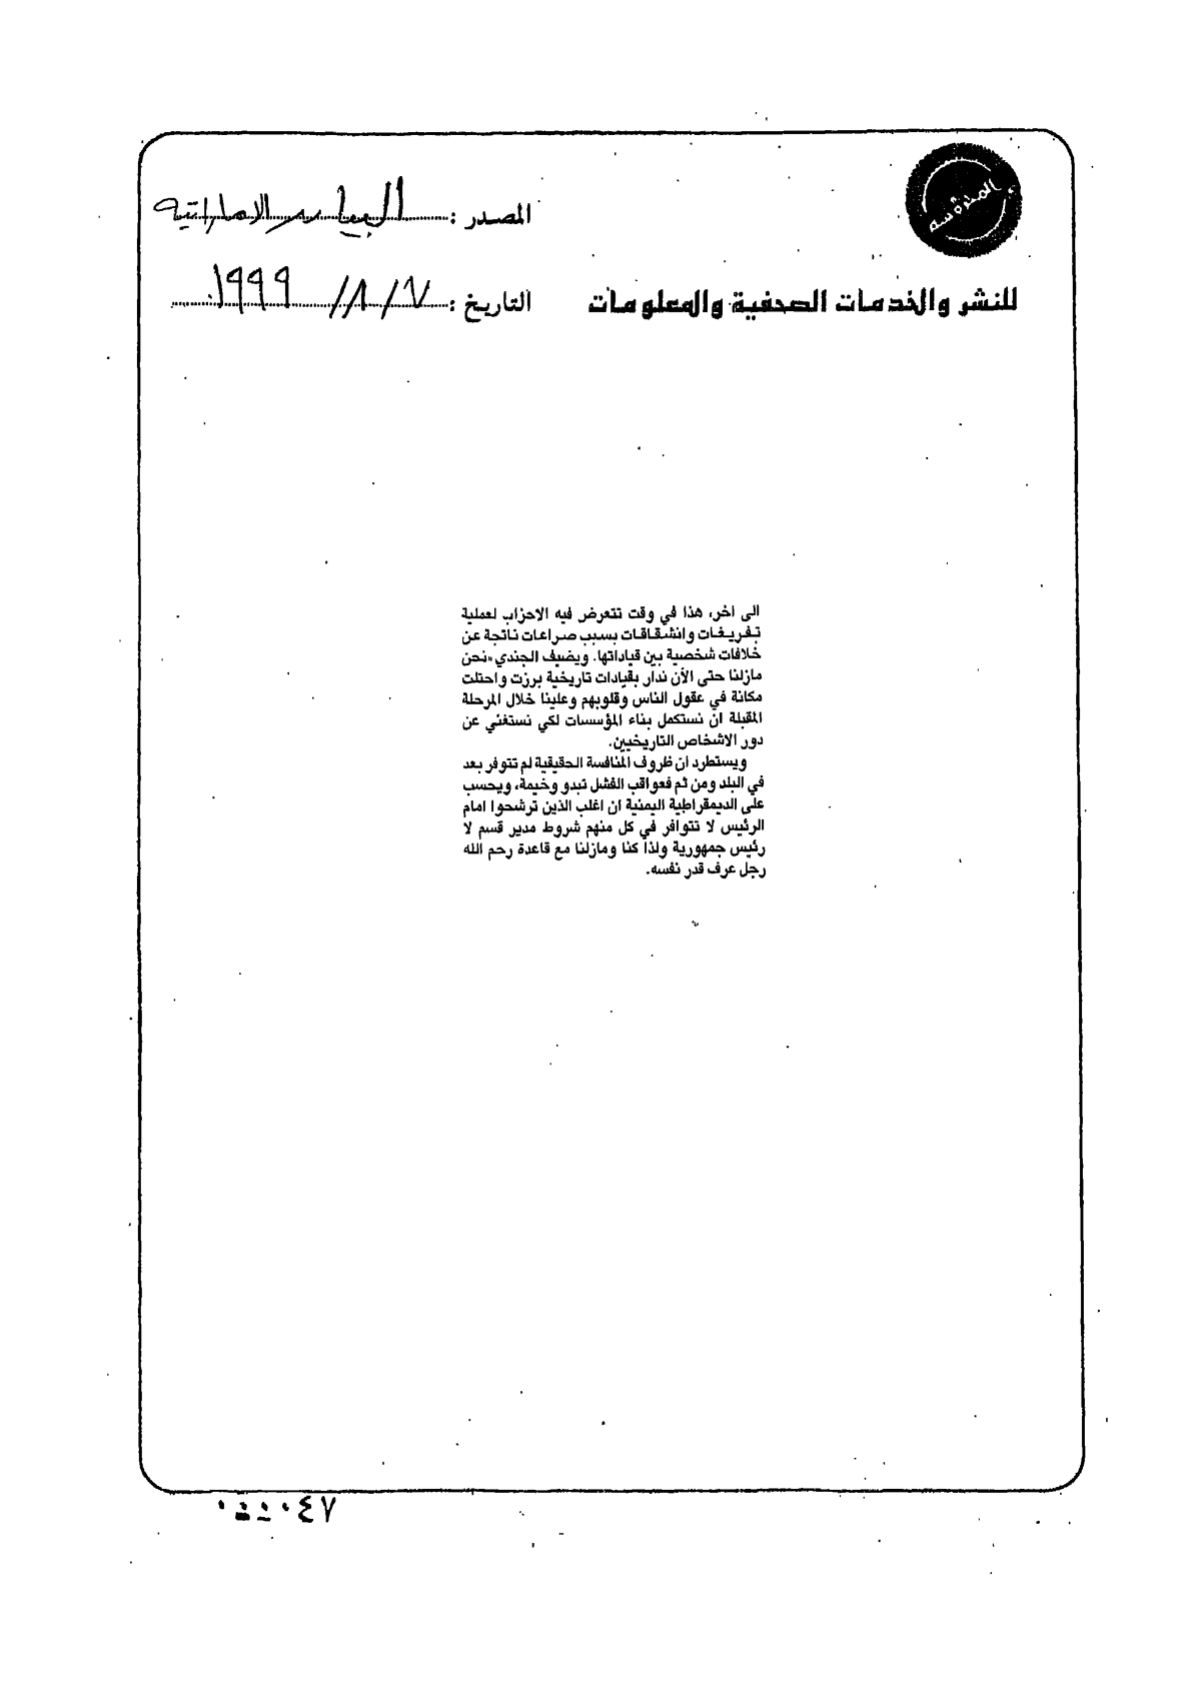 المحروسة
المصدر : البيان الاماراتية
للنشر والخدمات الصحفية والمعلومات
التاريخ : ٧ / ٨ / ١٩٩٩
الى اخر، هذا في وقت تتعرض فيه الاحزاب لعملية
تفريغات وانشقاقات بسبب صراعات ناتجة عن
خلافات شخصية بين قياداتها. ويضيف الجندي «نحن
مازلنا حتى الأن ندار بقيادات تاريخية برزت واحتلت
مكانة في عقول الناس وقلوبهم وعلينا خلال المرحلة
المقبلة ان نستكمل بناء المؤسسات لكي نستغني عن
دور الاشخاص التاريخيين.
ويستطرد ان ظروف المنافسة الحقيقية لم تتوفر بعد
في البلد ومن ثم فعواقب الفشل تبدو وخيمة، ويحسب
على الديمقراطية اليمنية ان اغلب الذين ترشحوا امام
الرئيس لا تتوافر في كل منهم شروط مدير قسم لا
رئيس جمهورية ولذا كنا ومازلنا مع قاعدة رحم الله
رجل عرف قدر نفسه.